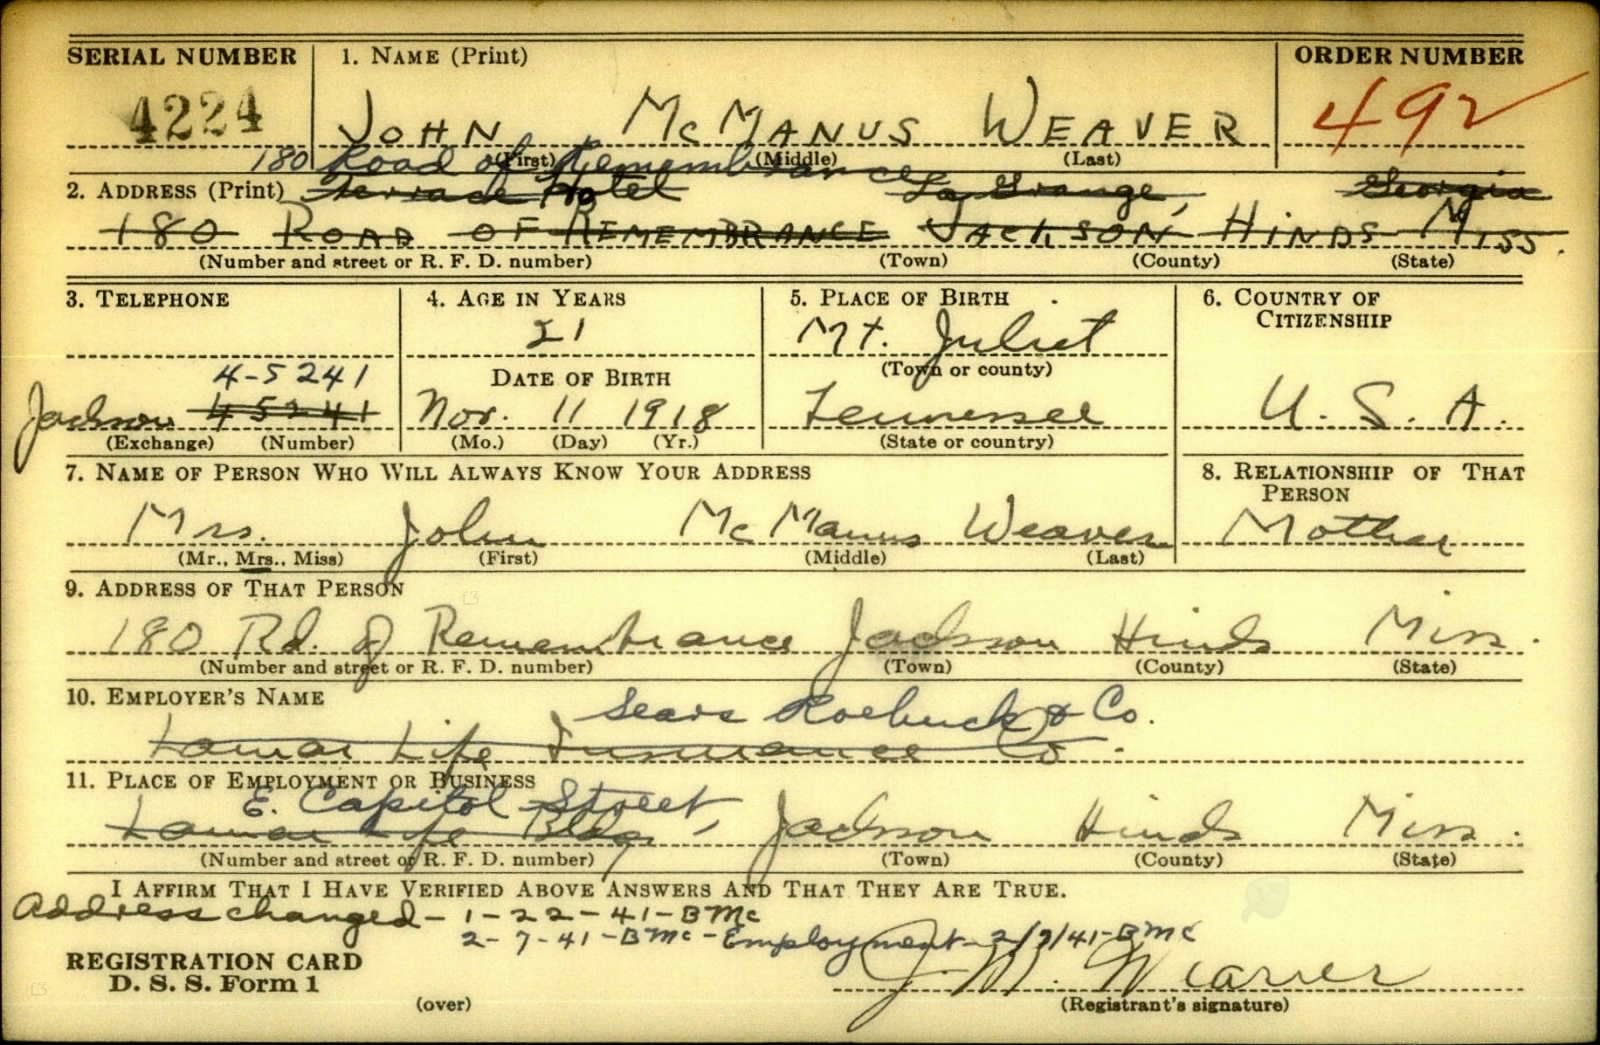 SERIAL NUMBER 1. NAME (Print) ORDER NUMBER
4224 JOHN McMANUS WEAVER 492
(First) (Middle) (Last)
180 Road of Remembrance
2. ADDRESS (Print) Terrace Hotel La Grange, Georgia
180 ROAD OF REMEMBRANCE JACKSON HINDS MISS.
(Number and street or R. F. D. number) (Town) (County) (State)
3. TELEPHONE 4. AGE IN YEARS 5. PLACE OF BIRTH 6. COUNTRY OF CITIZENSHIP
21 Mt. Juliet
(Town or county)
4-5241 DATE OF BIRTH
Jackson 45241 Nov. 11 1918 Tennessee U. S. A.
(Exchange) (Number) (Mo.) (Day) (Yr.) (State or country)
7. NAME OF PERSON WHO WILL ALWAYS KNOW YOUR ADDRESS 8. RELATIONSHIP OF THAT PERSON
Mrs. John McManus Weaver Mother
(Mr., Mrs., Miss) (First) (Middle) (Last)
9. ADDRESS OF THAT PERSON
180 Rd. of Remembrance Jackson Hinds Miss.
(Number and street or R. F. D. number) (Town) (County) (State)
10. EMPLOYER'S NAME
Sears Roebuck & Co.
Lamar Life Insurance Co.
11. PLACE OF EMPLOYMENT OR BUSINESS
E. Capitol Street
Lamar Life Bldg, Jackson Hinds Miss.
(Number and street or R. F. D. number) (Town) (County) (State)
I AFFIRM THAT I HAVE VERIFIED ABOVE ANSWERS AND THAT THEY ARE TRUE.
Address changed - 1-22-41-BMc
2-7-41-BMc - Employment - 2/7/41-BMc
REGISTRATION CARD
D. S. S. Form 1 J. M. Weaver
(over) (Registrant's signature)